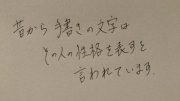 昔から手書きの文字は
その人の性格を表すと
言われています